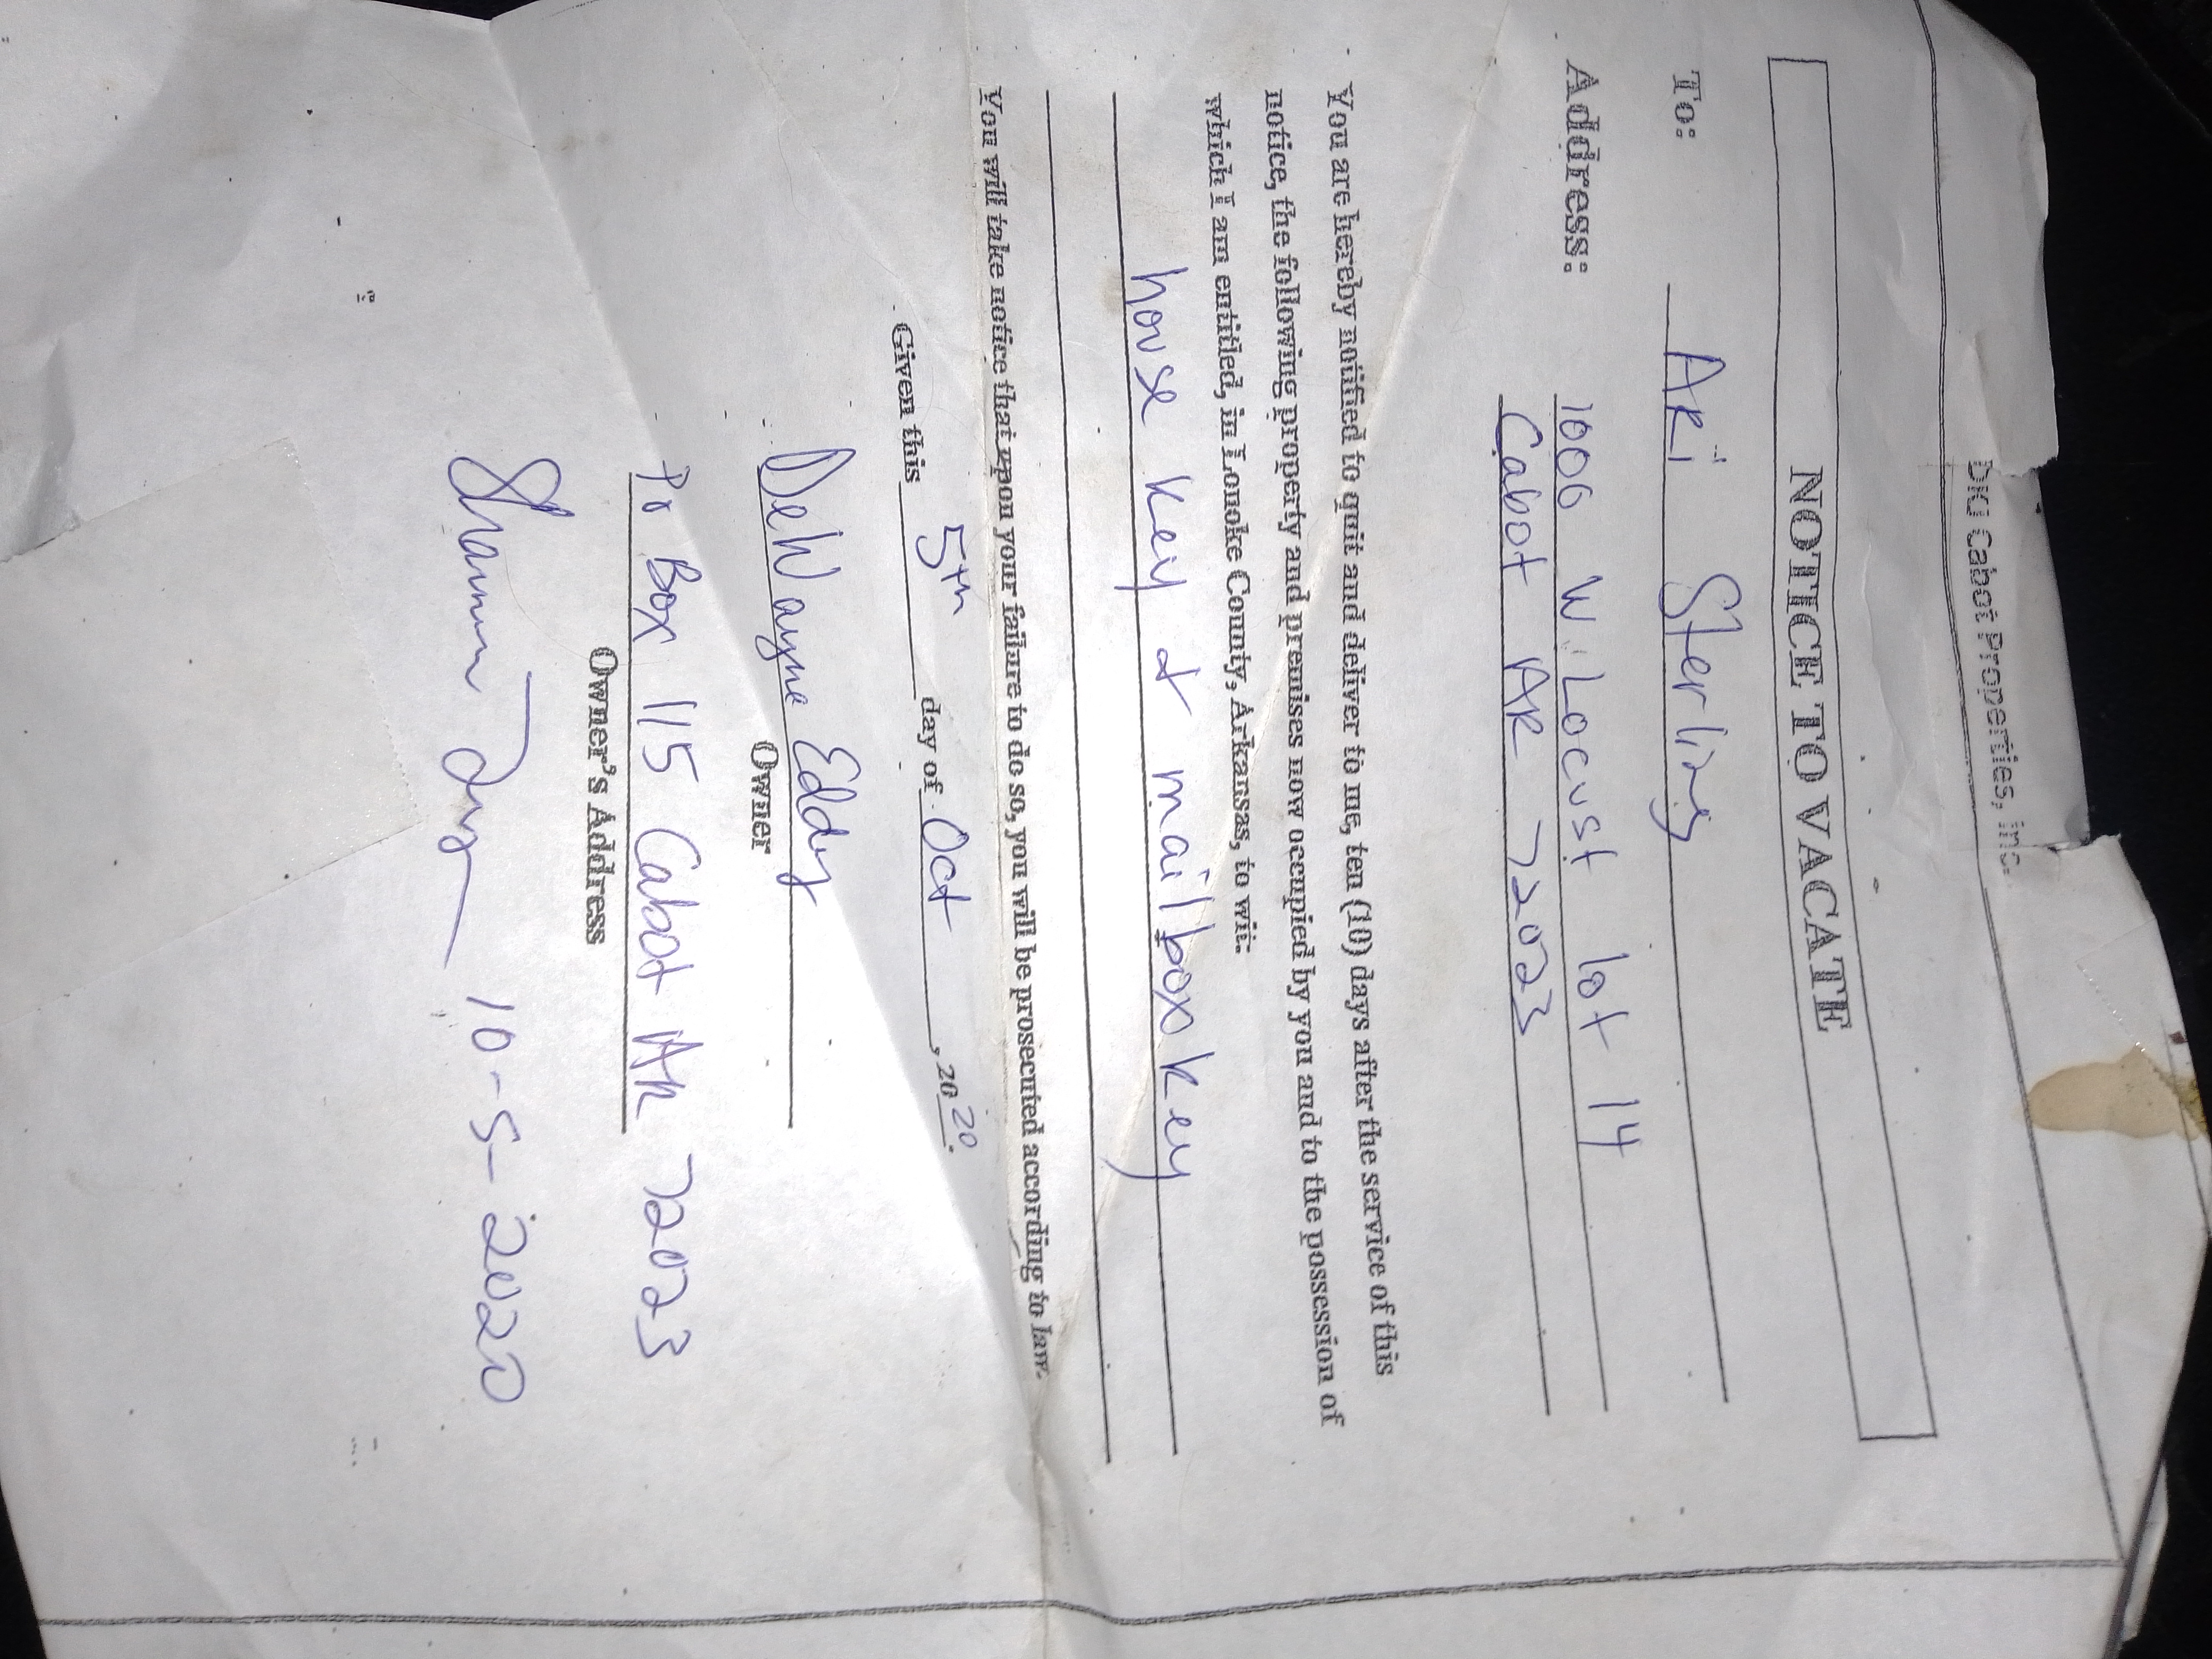 Cabot Properties, Inc.
NOTICE TO VACATE
To: Aki Sterling
Address: 1000 W. Locust lot 14
Cabot AR 72023
You are hereby notified to quit and deliver to me, ten (10) days after the service of this
notice, the following property and premises now occupied by you and to the possession of
which I am entitled, in Lonoke County, Arkansas, to wit:
house key & mailbox key
You will take notice that upon your failure to do so, you will be prosecuted according to law.
Given this 5th day of Oct, 2020.
DeWayne Eddy
Owner
Po Box 115 Cabot AR 72023
Owner's Address
10-5-2020